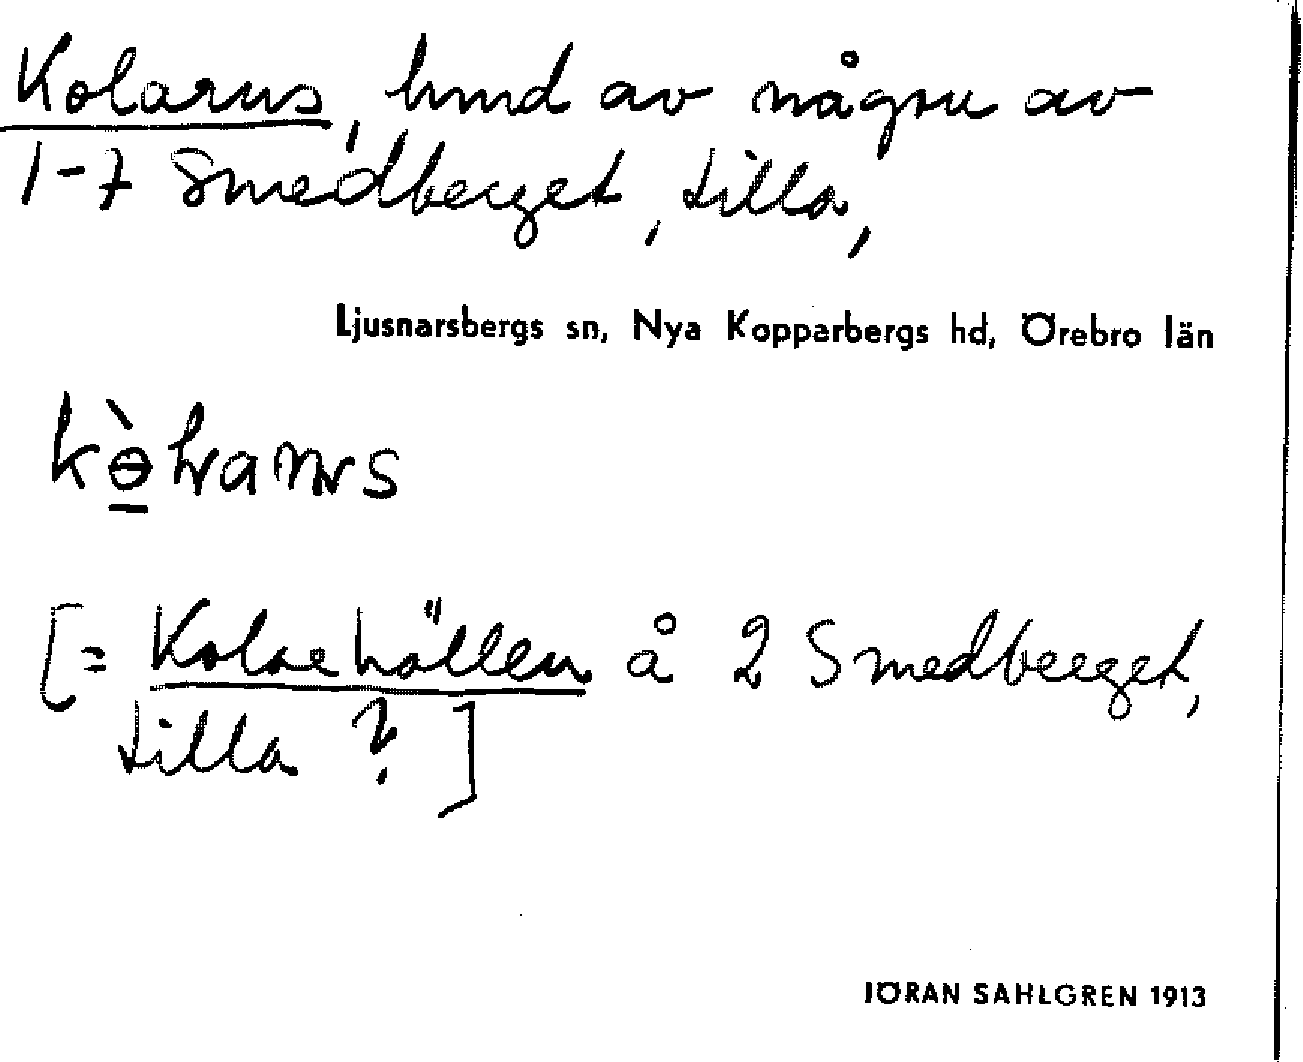 Kolarns, hmd av någon av
1-7 Smedberget, Lilla,
Ljusnarsbergs sn, Nya Kopparbergs hd, Örebro län
[= Kolarehällen å 2 Smedberget,
Lilla ? ]
JÖRAN SAHLGREN 1913